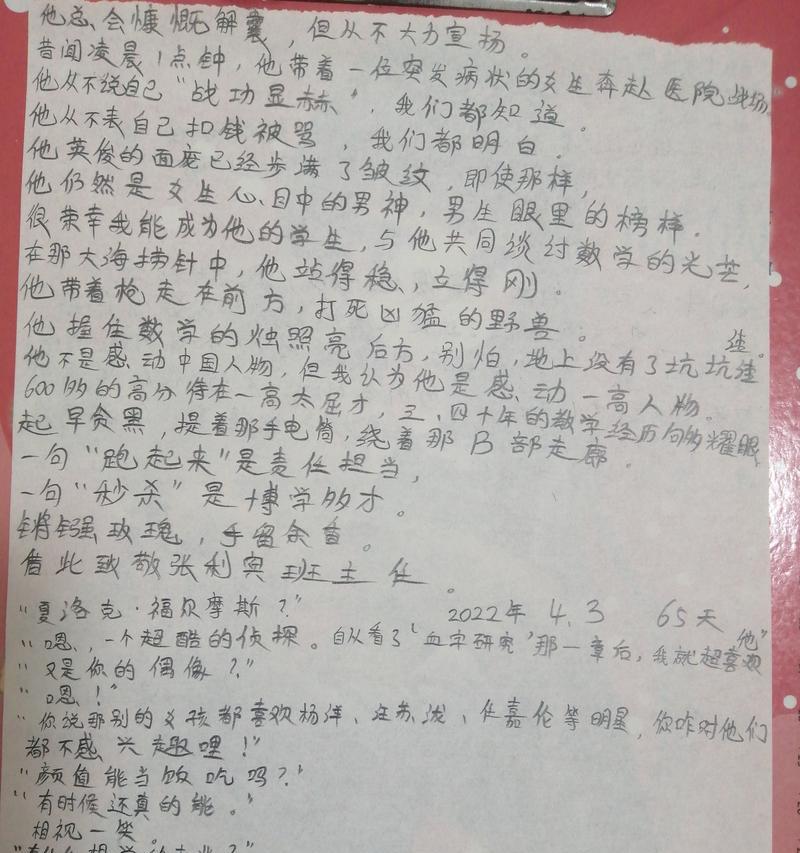 他总会慷慨解囊，但从不大力宣扬。
昔闻凌晨1点钟，他带着一位突发病状的女生奔赴医院战场，
他从不说自己“战功显赫”，我们都知道。
他从不表自己扣钱被骂，我们都明白。
他英俊的面庞已经步满了皱纹，即使那样，
他仍然是女生心目中的男神，男生眼里的榜样。
很荣幸我能成为他的学生，与他共同谈讨数学的光芒，
在那大海捞针中，他站得稳，立得刚。
他带着枪走在前方，打死凶猛的野兽。
他握住数学的烛照亮后方，别怕，地上没有了坑坑洼洼。
他不是感动中国人物，但我认为他是感动一高人物。
600多的高分待在一高太屈才，三、四十年的教学经历何够耀眼
起早贪黑，提着那手电筒，绕着那B部走廊。
一句“跑起来”是责任担当，
一句“秒杀”是博学多才。
铿锵玫瑰，手留余香。
借此致敬张利宾班主任。
2022年 4.3 65天
“夏洛克·福尔摩斯？”
“嗯，一个超酷的侦探。自从看了‘血字研究’那一章后，我就超喜欢他”
“又是你的偶像？”
“嗯！”
“你说那别的女孩都喜欢杨洋、汪苏泷、任嘉伦等明星，你咋对他们
都不感兴趣哩！”
“颜值能当饭吃吗？”
“有时候还真的能。”
相视一笑。